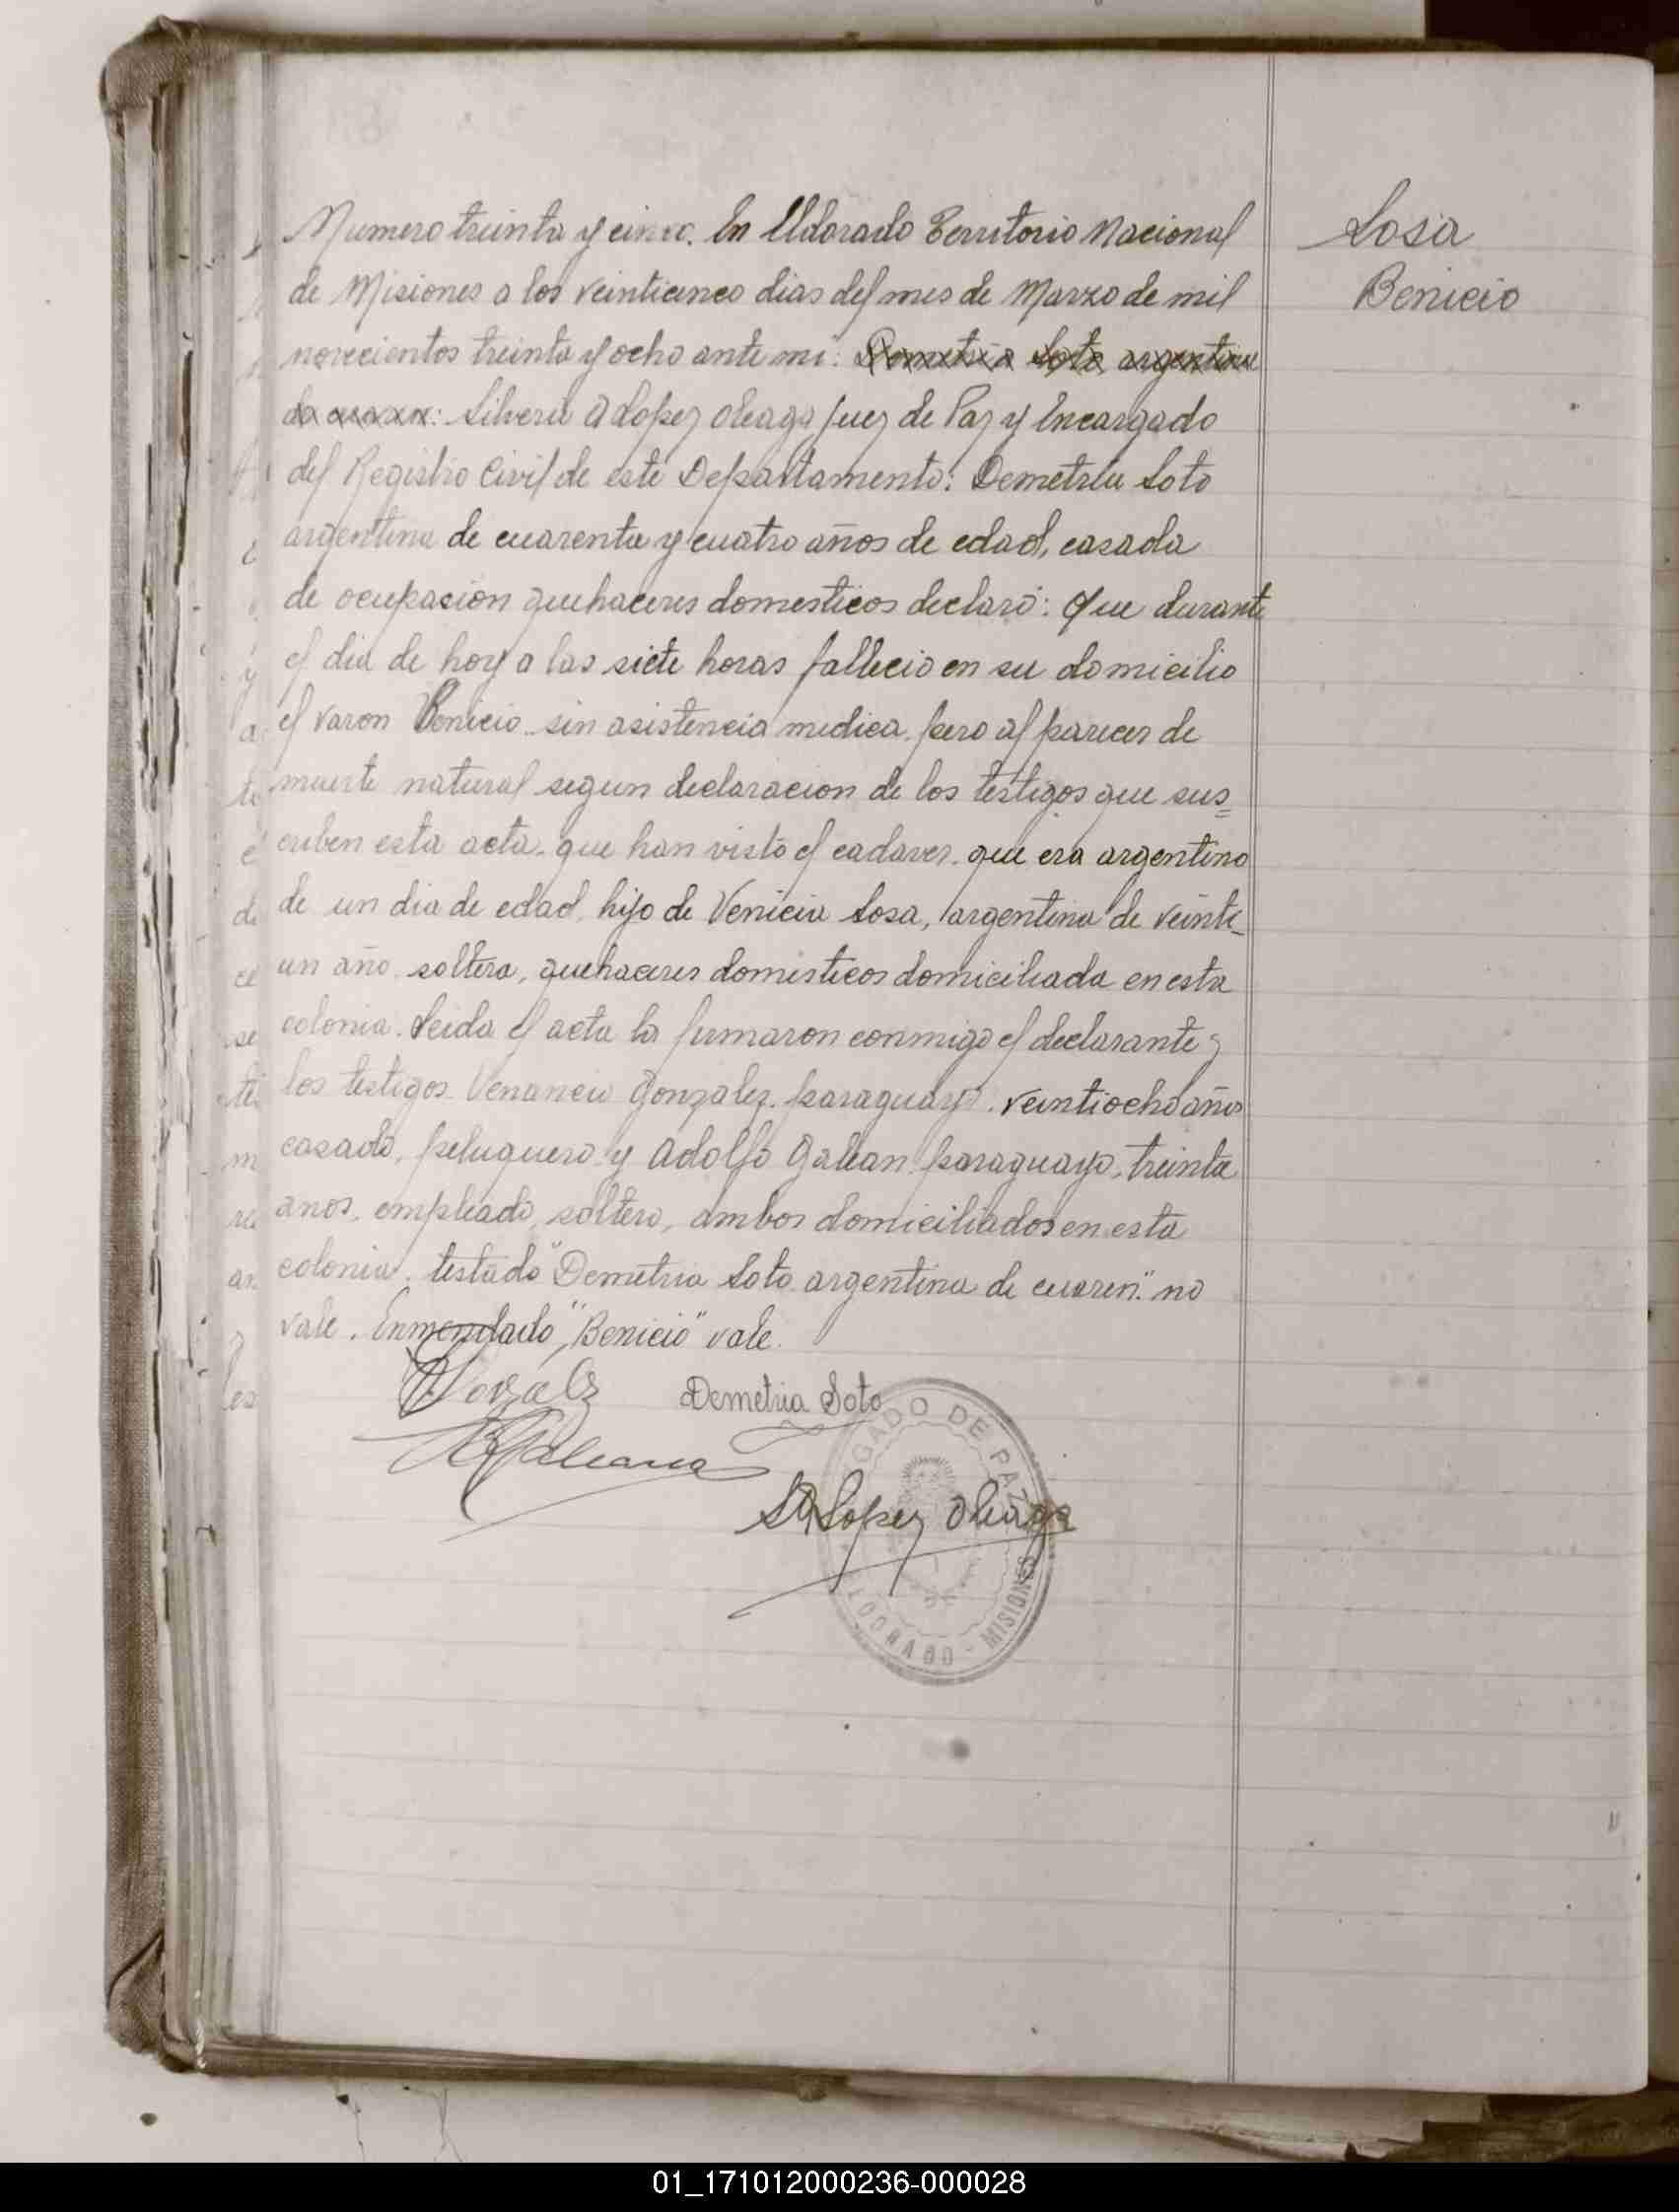 Numero treinta y cinco. En Eldorado Territorio Nacional
de Misiones a los veinticinco dias del mes de Marzo de mil
novecientos treinta y ocho ante mi: Demetria Soto argentina
de cuaren: Silverio A Lopez Oleaga Juez de Paz y Encargado
del Registro Civil de este Departamento: Demetria Soto
argentina de cuarenta y cuatro años de edad, casada
de ocupasion quehaceres domesticos declaró: Que durante
el dia de hoy a las siete horas fallecio en su domicilio
el varon Benicio sin asistencia medica pero al parecer de
muerte natural segun declaracion de los testigos que sus=
criben esta acta que han visto el cadaver. que era argentino
de un dia de edad, hijo de Venicia Sosa, argentina de veinti-
un año soltera, quehaceres domisticos domiciliada en esta
colonia. Leida el acta la firmaron conmigo el declarante y
los testigos Venancio Gonzalez. paraguayo. veintiocho años
casado, peluquero y Adolfo Galean paraguayo, treinta
anos, empleado, soltero, ambos domiciliados en esta
colonia. testado "Demetria Soto argentina de cuaren" no
vale. Enmendado, "Benicio" vale.
Demetria Soto
SA Lopez Oleaga
JUZGADO DE PAZ
ELDORADO - MISIONES
Sosa
Benicio
01_171012000236-000028